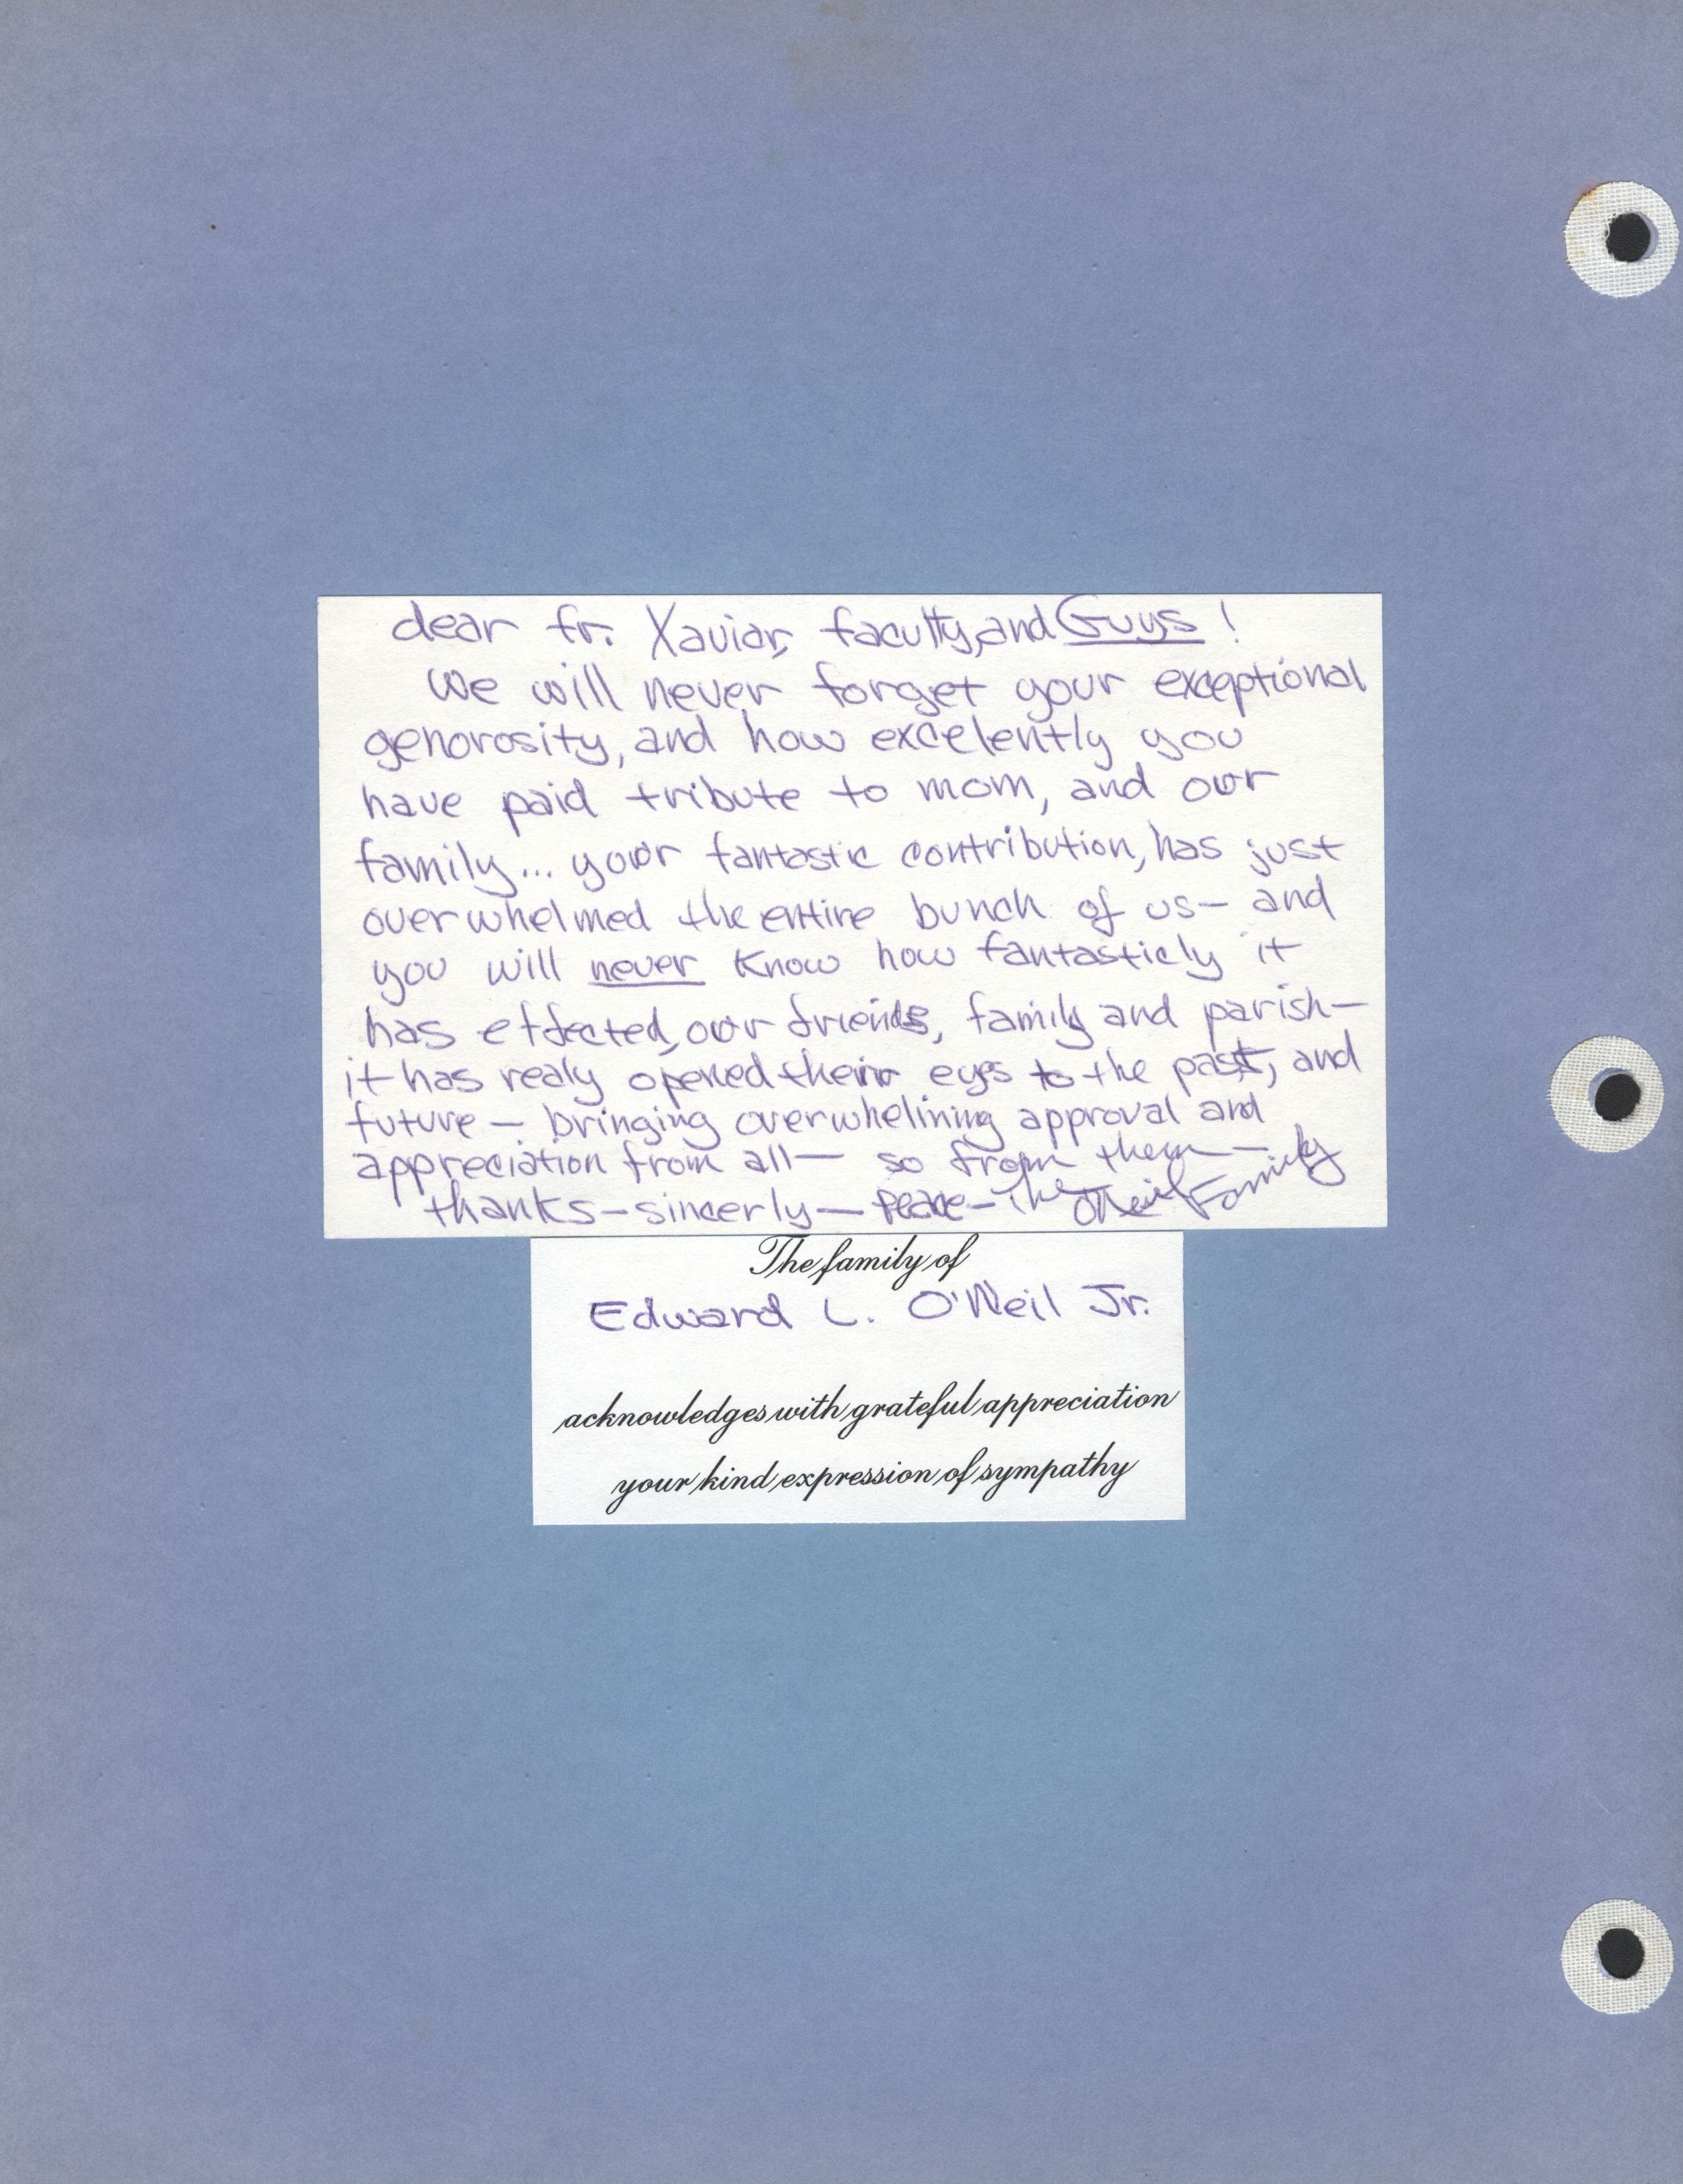 dear fr. Xaviar, faculty, and Guys!
We will never forget your exceptional
genorosity, and how excelently you
have paid tribute to mom, and our
family... your fantastic contribution, has just
overwhelmed the entire bunch of us— and
you will never know how fantasticly it
has effected, our friends, family and parish—
it has realy opened their eyes to the past, and
future — bringing overwhelining approval and
appreciation from all— so from them—
thanks—sincerly—Peace—The O'Neil Family
The family of
Edward L. O'Neil Jr.
acknowledges with grateful appreciation
your kind expression of sympathy